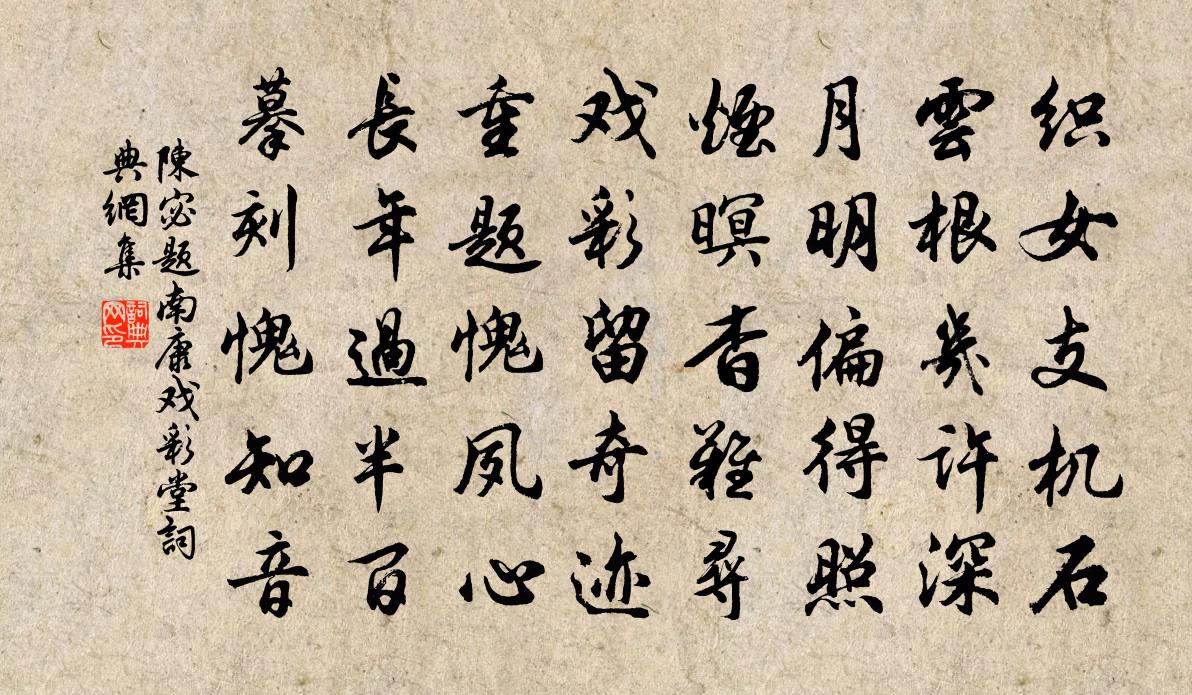 织女支机石
雲根幾许深
月明偏得照
煙暝杳難尋
戏彩留奇迹
重题愧夙心
長年過半百
摹刻愧知音
陳宓题南康戏彩堂詞
典網集
詞典
网印